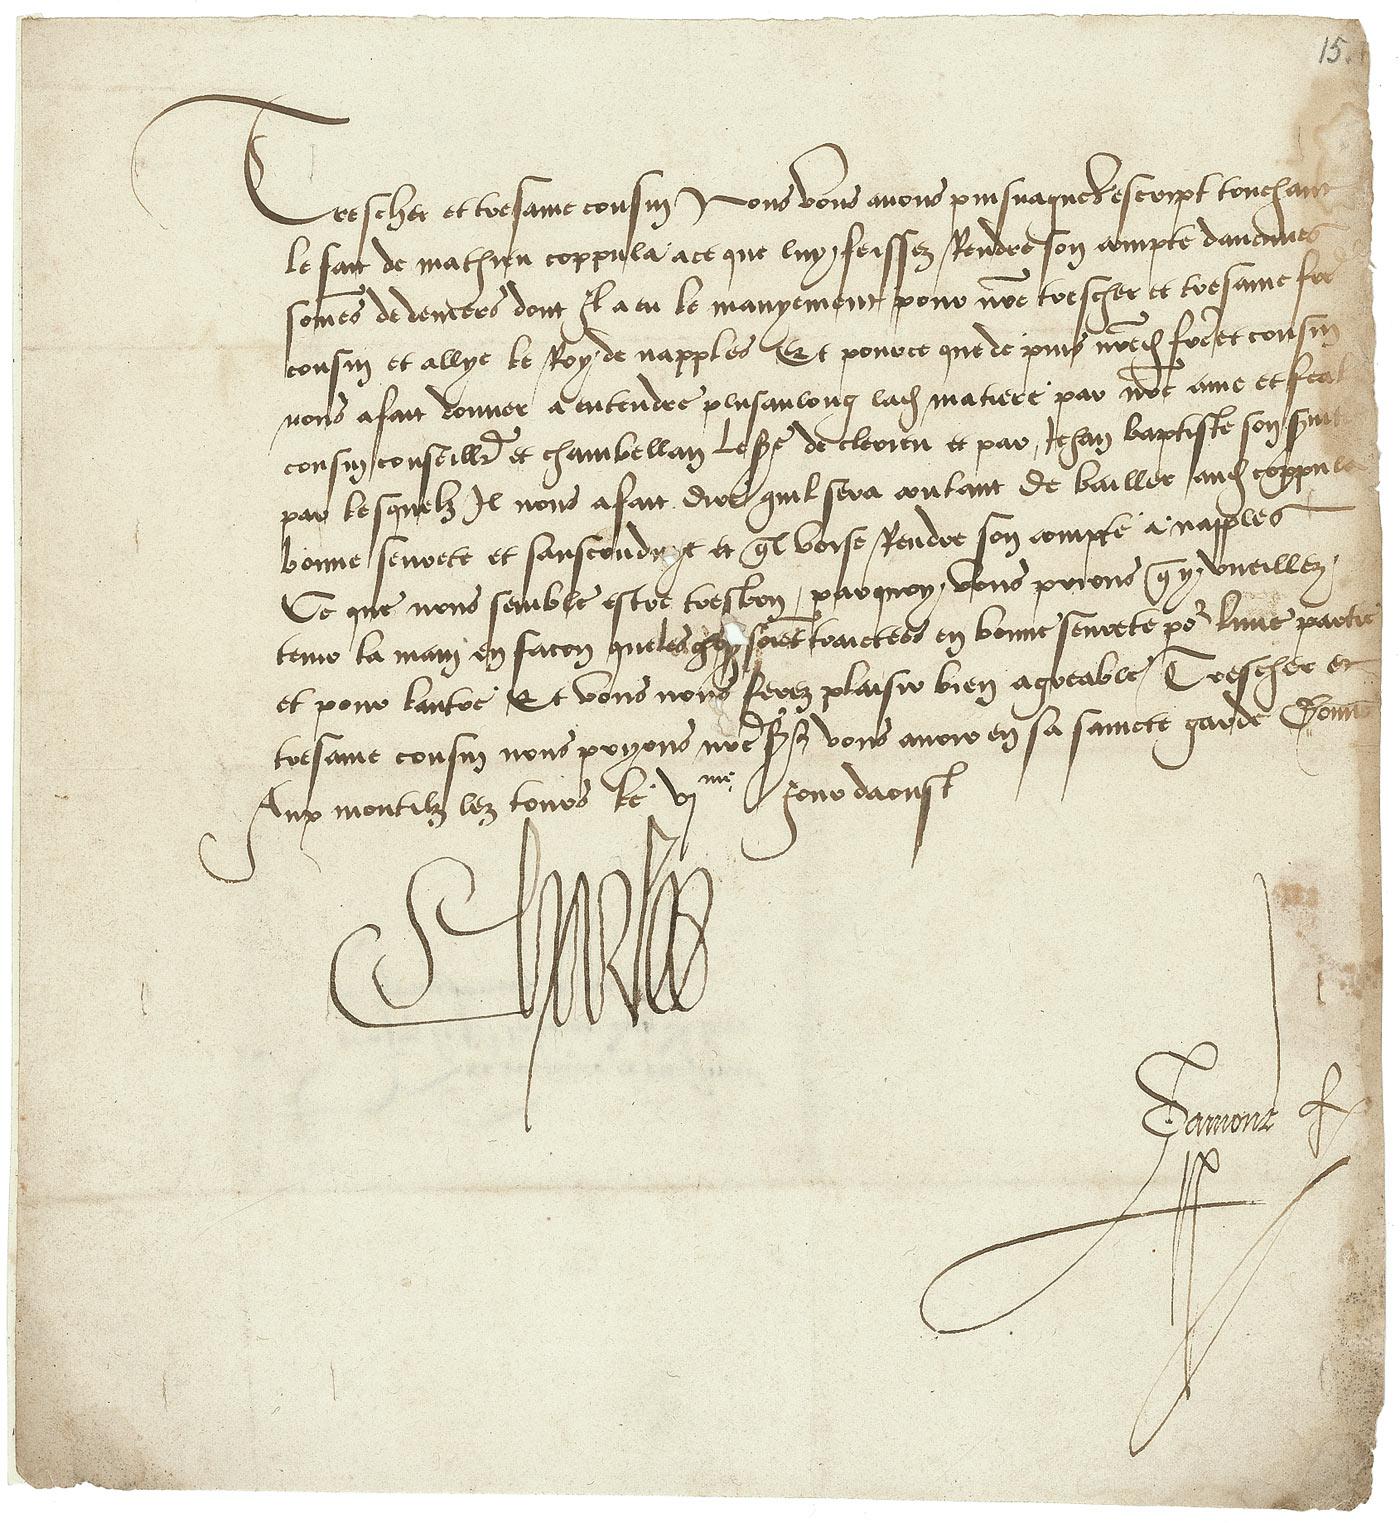 15.
Trescher et tresame cousin Nous vous avons puisnagueres escript touchant
le fait de mathieu coppula ace que luy feissez Rendre son compte daucunes
somes de deniers dont Il a eu le manyement pour nre trescher et tresame frere
cousin et allye le Roy de napples Et pource que de puis nred frere et cousin
nous a fait donner a entendre plus au long lad matiere par nre ame et feal
cousin conseiller et chambellan Le Sr de clerieu et par Jehan baptiste son
par lesquelz Il nous a fait dire quil sera contant De bailler aud coppula
bonne seurete et saufconduyt et ql voise Rendre son compte a napples
Ce que nous semble estre tresbon parquoy vous prions q y vueillez
tenir la main en facon que les choses soient traictees en bonne seurete por lune partie
et pour lautre Et vous nous ferez plaisir bien agreable Trescher et
tresame cousin nous pryons nre Sr vous avoir en sa saincte garde Donne
Aux montilz lez tours le vjme Jour daoust
Charles
Damont